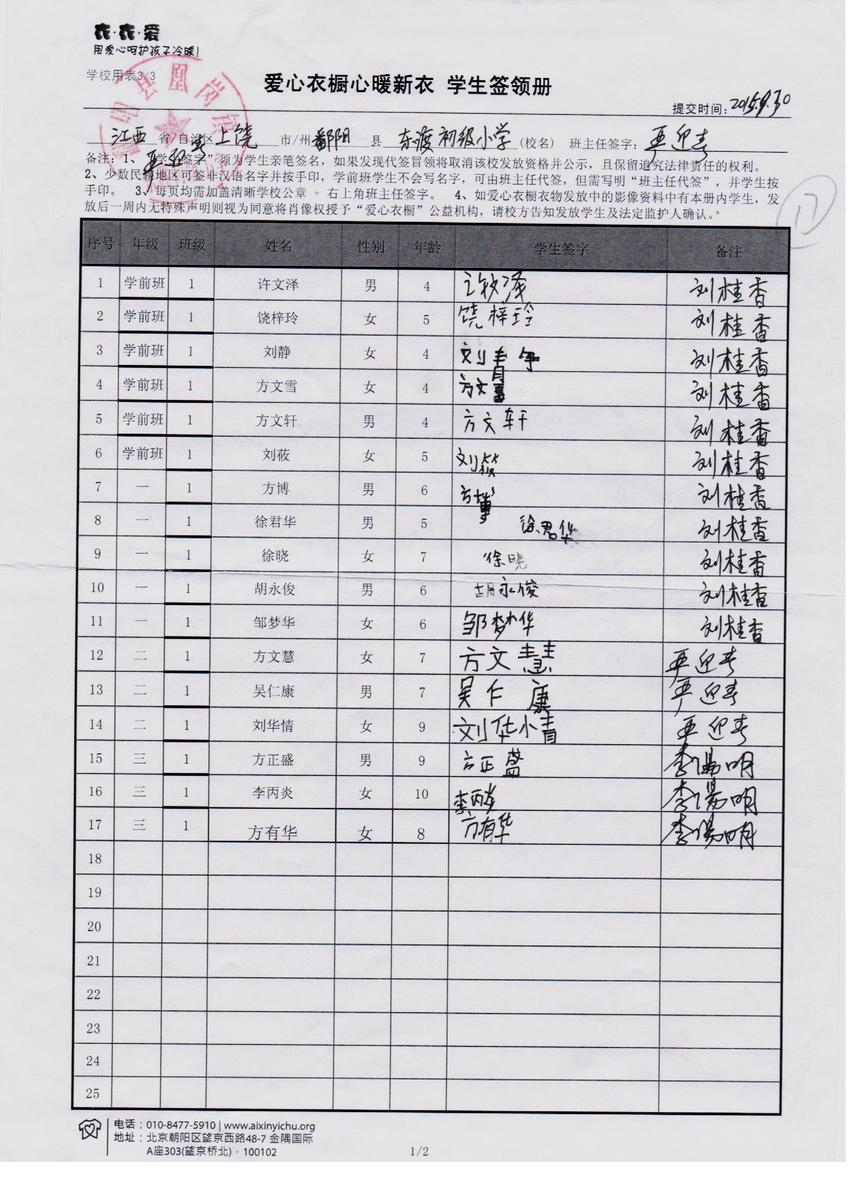 衣·衣·爱
用爱心呵护孩子冷暖!
学校用表3/3
爱心衣橱心暖新衣 学生签领册
提交时间:2015.9.30
江西 省/自治区 上饶 市/州 鄱阳 县 东渡初级小学 (校名) 班主任签字: 严迎春
备注:1、"学生签字"须为学生亲笔签名,如果发现代签冒领将取消该校发放资格并公示,且保留追究法律责任的权利。
2、少数民族地区可签非汉语名字并按手印,学前班学生不会写名字,可由班主任代签,但需写明"班主任代签",并学生按
手印。 3、每页均需加盖清晰学校公章 + 右上角班主任签字。 4、如爱心衣橱衣物发放中的影像资料中有本册内学生,发
放后一周内无特殊声明则视为同意将肖像权授予"爱心衣橱"公益机构,请校方告知发放学生及法定监护人确认。
17
序号 年级 班级 姓名 性别 年龄 学生签字 备注
1 学前班 1 许文泽 男 4 刘桂香
2 学前班 1 饶梓玲 女 5 饶梓玲 刘桂香
3 学前班 1 刘静 女 4 刘静 刘桂香
4 学前班 1 方文雪 女 4 方文雪 刘桂香
5 学前班 1 方文轩 男 4 方文轩 刘桂香
6 学前班 1 刘莜 女 5 刘莜 刘桂香
7 一 1 方博 男 6 方博 刘桂香
8 一 1 徐君华 男 5 徐君华 刘桂香
9 一 1 徐晓 女 7 徐晓 刘桂香
10 一 1 胡永俊 男 6 胡永俊 刘桂香
11 一 1 邹梦华 女 6 邹梦华 刘桂香
12 二 1 方文慧 女 7 方文慧 严迎春
13 二 1 吴仁康 男 7 吴仁康 严迎春
14 二 1 刘华情 女 9 刘华情 严迎春
15 三 1 方正盛 男 9 方正盛 李汤明
16 三 1 李丙炎 女 10 李丙炎 李汤明
17 三 1 方有华 女 8 方有华 李汤明
18
19
20
21
22
23
24
25
电话:010-8477-5910 | www.aixinyichu.org
地址:北京朝阳区望京西路48-7 金隅国际
A座303(望京桥北)·100102
1/2